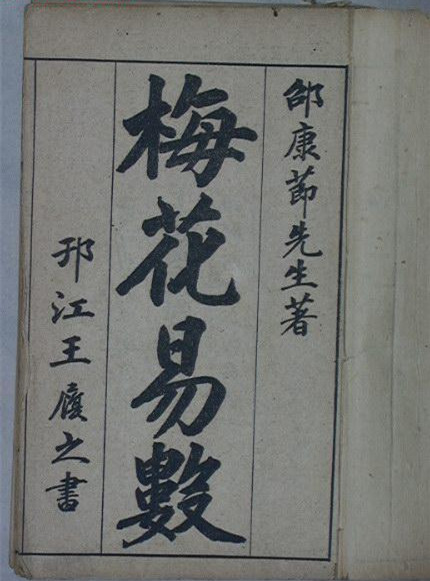 邵康節先生著
梅花易數
邗江王廎之書